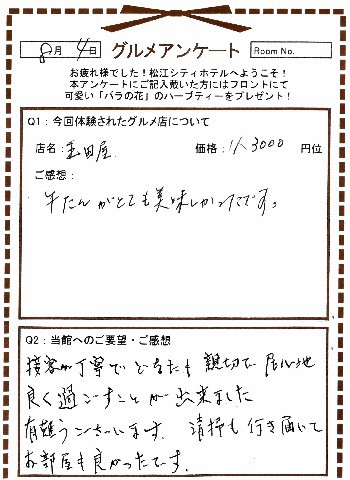 8月4日 グルメアンケート Room No.
お疲れ様でした！松江シティホテルへようこそ！
本アンケートにご記入戴いた方にはフロントにて
可愛い「バラの花」のハーブティーをプレゼント！
Q1：今回体験されたグルメ店について
店名： 価格：1人3000 円位
ご感想：
牛たんがとても美味しかったです。
Q2：当館へのご要望・ご感想
接客が丁寧でどなたも親切で居心地
良く過ごすことが出来ました
有難うございます。清掃も行き届いて
お部屋も良かったです。